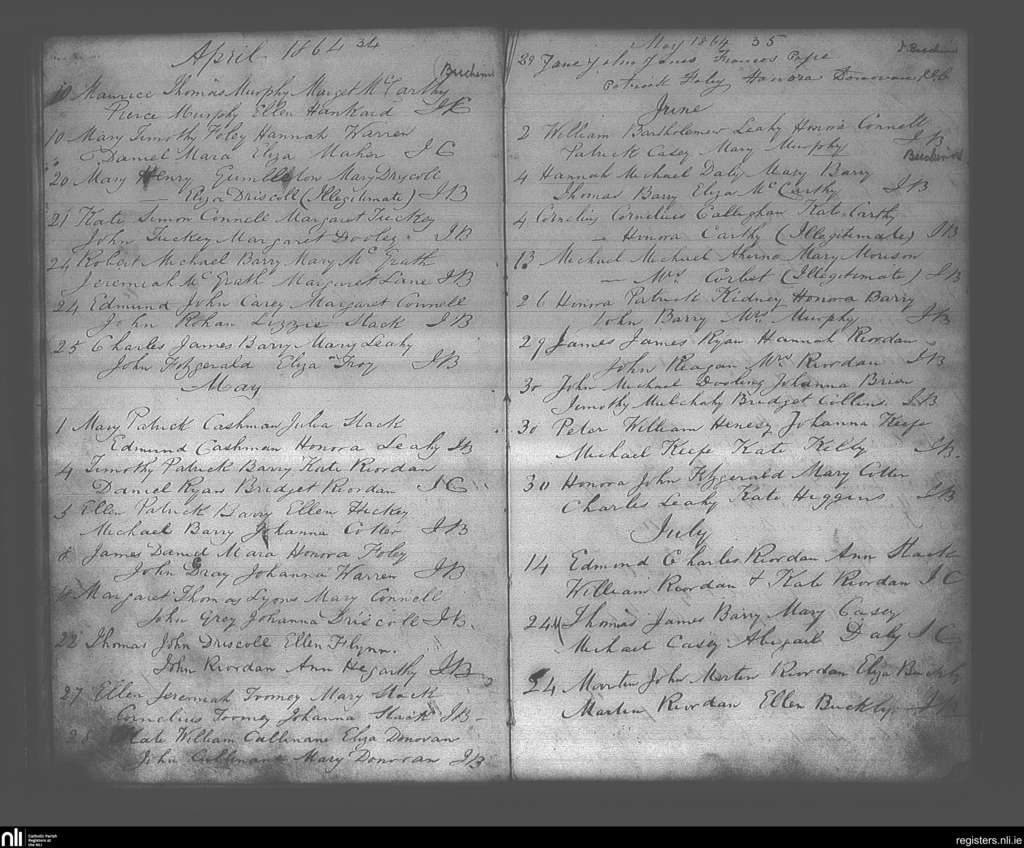 April 1864 34
10 Maurice Thomas Murphy Marget McCarthy
Pierce Murphy Ellen Hankard JC
10 Mary Timothy Foley Hannah Warren
Daniel Mara Eliza Maher JC
20 Mary Henry Mary Dryscole
— Eliza Driscoll (Illegitimate) JB
21 Kate Simon Connell Margaret Tuckey
John Tuckey Margaret Dooley JB
24 Robert Michael Barry Mary McGrath
Jeremiah McGrath Margaret Lane JB
24 Edmund John Carey Margaret Connell
John Rohan Lizzie Stack JB
25 Charles James Barry Mary Leahy
John Fitzgerald Eliza Troy JB
May
1 Mary Patrick Cashman Julia Stack
Edmund Cashman Honora Leahy JB
4 Timothy Patrick Barry Kate Riordan
Daniel Ryan Bridget Riordan JC
5 Ellen Patrick Barry Ellen Hickey
Michael Barry Johanna Cotter JB
8 James Daniel Mara Honora Foley
John Dray Johanna Warren JB
Margaret Thomas Lyons Mary Connell
John Grey Johanna Driscoll JB.
22 Thomas John Driscoll Ellen Flynn.
John Riordan Ann Hegarthy JB
27 Ellen Jeremiah Toomey Mary Stack
Cornelius Toomey Johanna Stack JB
28 Kate William Cullinane Eliza Donovan
John Cullinane Mary Donovan JB
May 1864 35
29 Jane John Francis Pope
Patrick Foley Honora Donovan
June
2 William Bartholemew Leahy Honora Connell
Patrick Casey Mary Murphy JB
4 Hannah Michael Daly Mary Barry
Thomas Barry Eliza McCarthy JB
4 Cornelius Cornelius Callaghan Kate Carthy
— Honora Carthy (Illegitimate) JB
13 Michael Michael Aherne Mary Morison
— Mrs Corbet (Illegetimate) JB
26 Honora Patrick Kidney Honora Barry
John Barry Mrs Murphy JB
29 James James Ryan Hannah Riordan
John Reagan Mrs Riordan JB
30 John Michael Dooling Johanna Brien
Timothy Mulchahy Bridget Collins JB
30 Peter William Henesy Johanna Keefe
Michael Keefe Kate Kelly JB.
30 Honora John Fitzgerald Mary Cotter
Charles Leahy Kate Higgins JB
July
14 Edmund Charles Riordan Ann Stack
William Riordan & Kate Riordan JC
24 Thomas James Barry Mary Casey
Michael Casey Abigail Daly JC
24 Martin John Martin Riordan Eliza Buckly
Martin Riordan Ellen Buckley JB
nli
Catholic Parish
Registers at
the NLI
registers.nli.ie